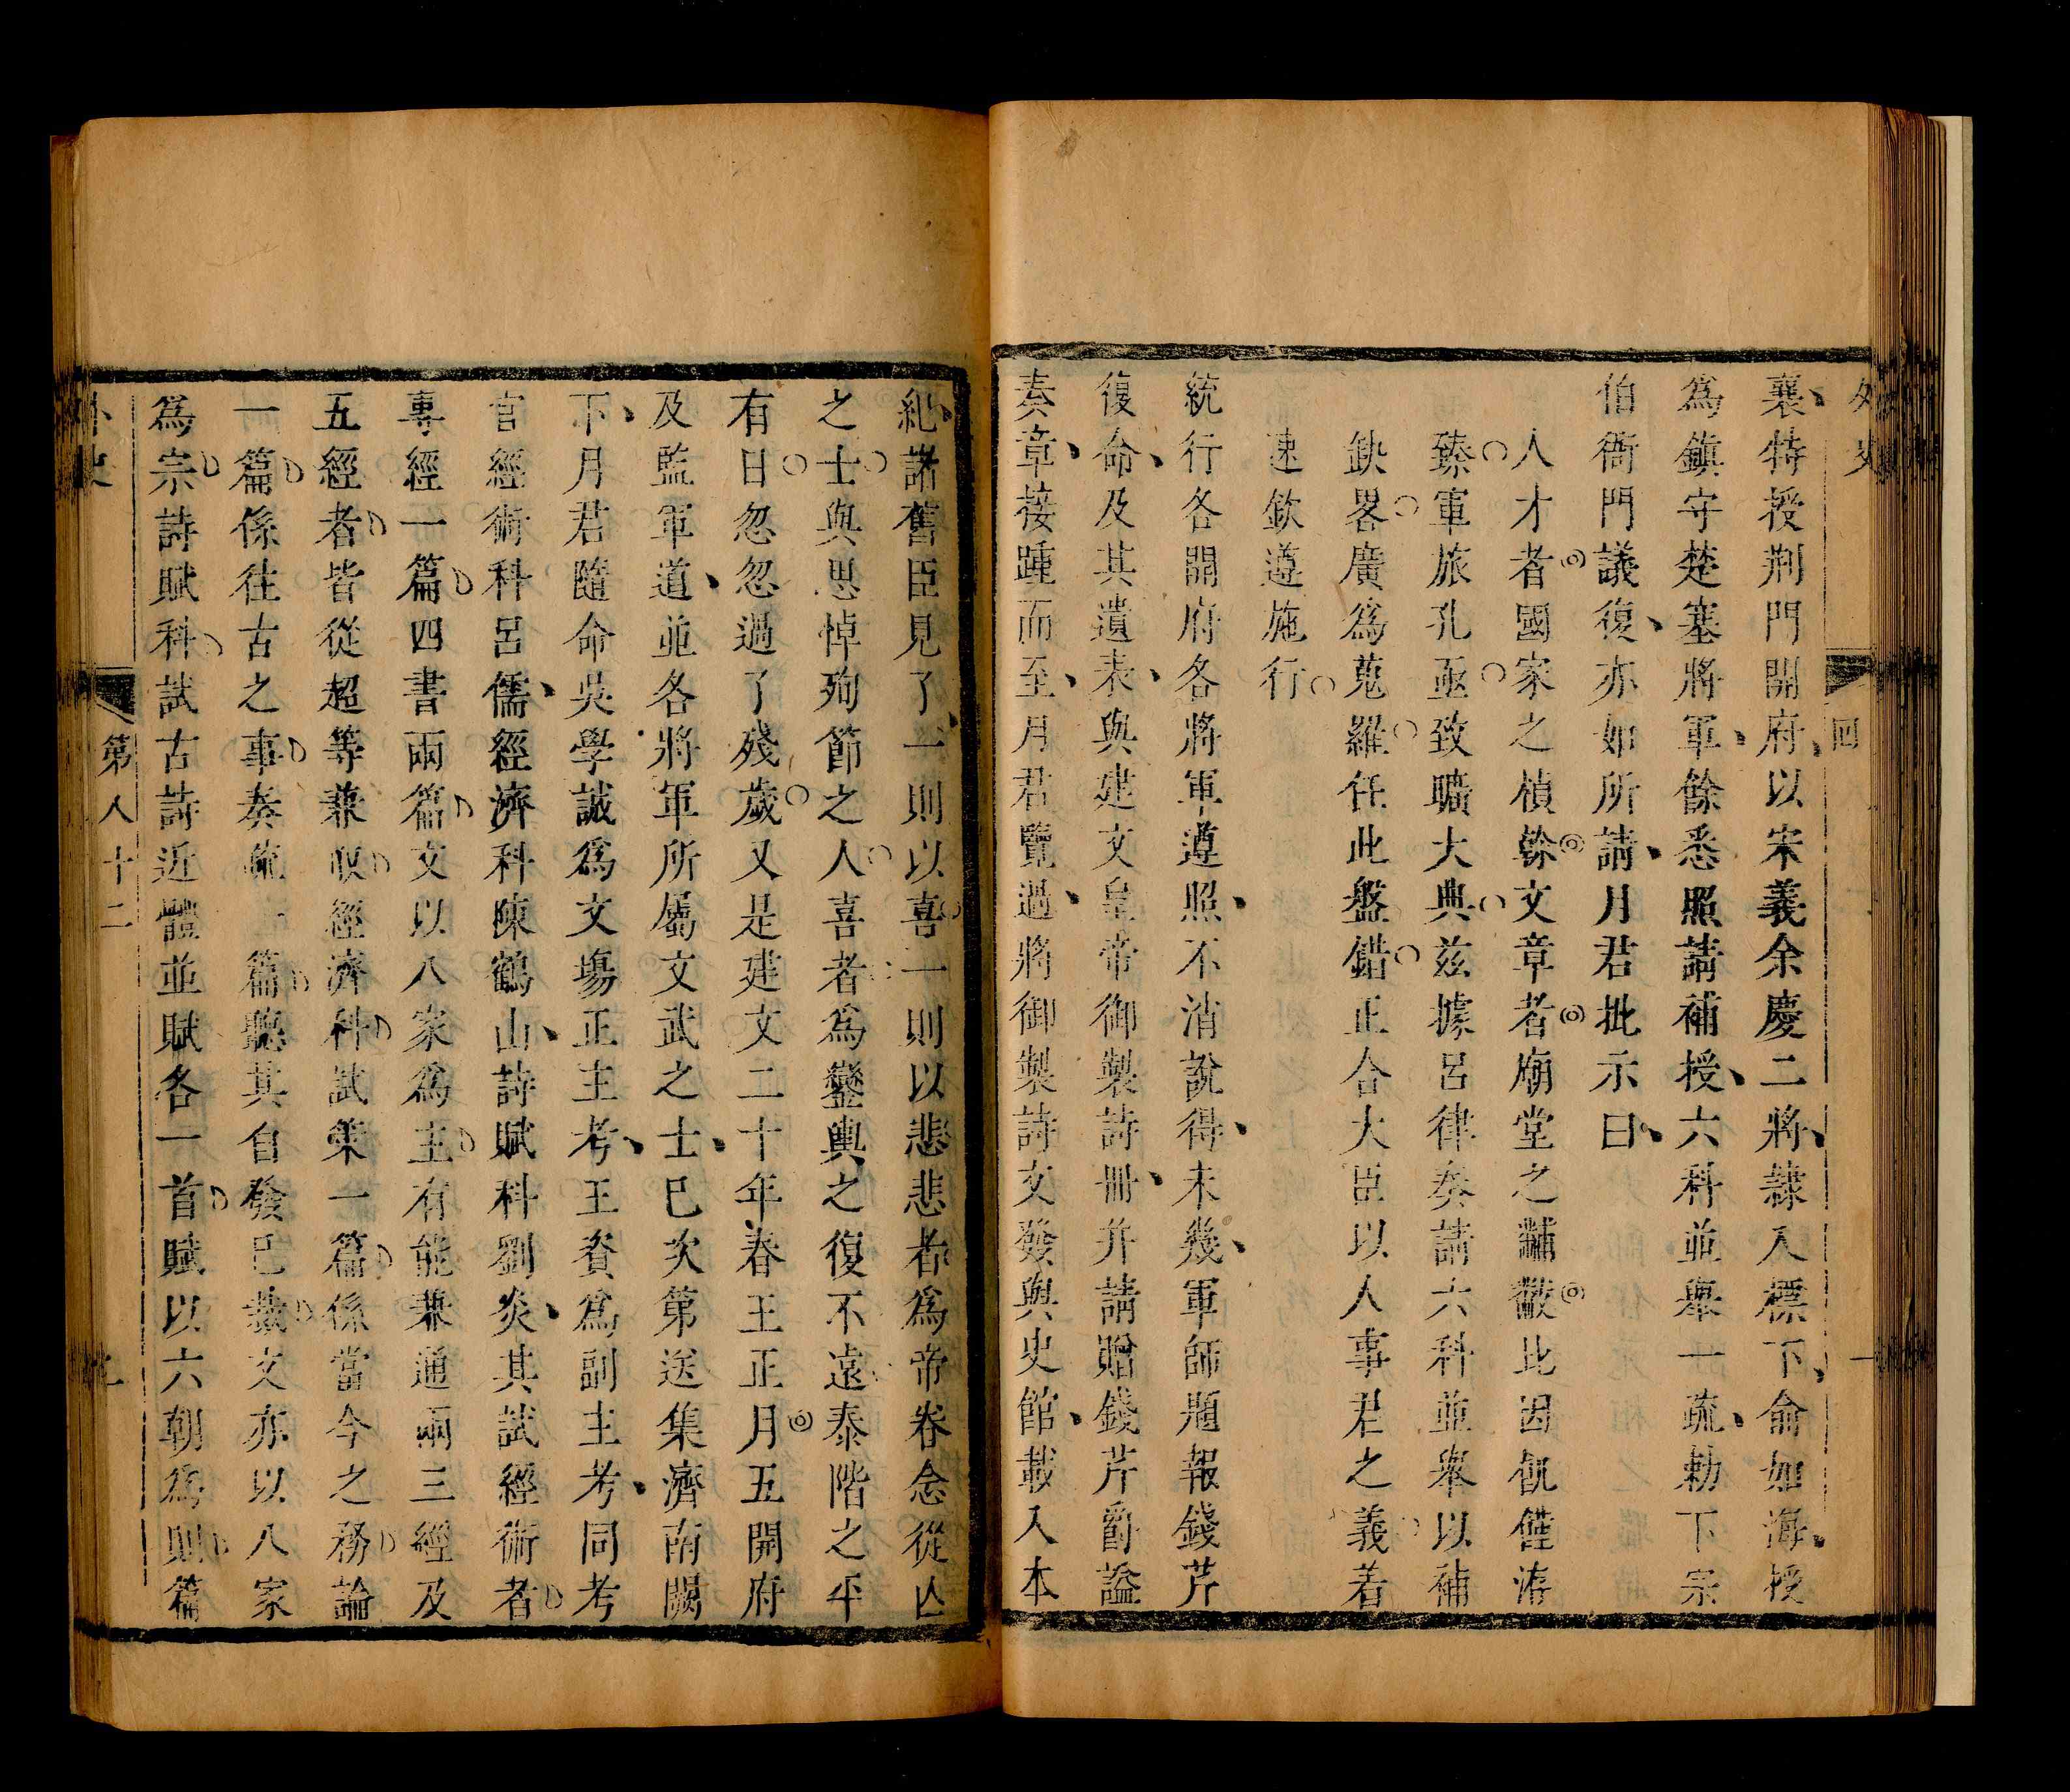 外史
回
一
襄特授荆門開府以宋義余慶二將隷入標下俞如海授
爲鎭守楚塞將軍餘悉照請補授六科並舉一疏勅下宗
伯衙門議復亦如所請月君批示曰
人才者國家之楨榦文章者廟堂之黼黻比因氛侵洊
臻軍旅孔亟致曠大典兹據呂律奏請六科並舉以補
缺畧廣爲蒐羅任此盤錯正合大臣以人事君之義着
速欽遵施行
統行各開府各將軍遵照不消說得未幾軍師題報錢芹
復命及其遺表與建文皇帝御製詩冊并請贈錢芹爵謚
奏章接踵而至月君覽過將御製詩文發與史館載入本
紀諸舊臣見了一則以喜一則以悲悲者爲帝眷念從亡
之士與思悼殉節之人喜者爲鑾輿之復不遠泰階之平
有日忽忽過了殘歲又是建文二十年春王正月五開府
及監軍道並各將軍所屬文武之士已次第送集濟南闕
下月君隨命吳學誠爲文塲正主考王資爲副主考同考
官經術科呂儒經濟科陳鶴山詩賦科劉炎其試經術者
專經一篇四書兩篇文以八家爲主有能兼通兩三經及
五經者皆從超等兼収經濟科試策一篇係當今之務論
一篇係往古之事奏疏一篇聽其自發已裁文亦以八家
爲宗詩賦科試古詩近體並賦各一首賦以六朝爲則篇
外史
第八十二
二